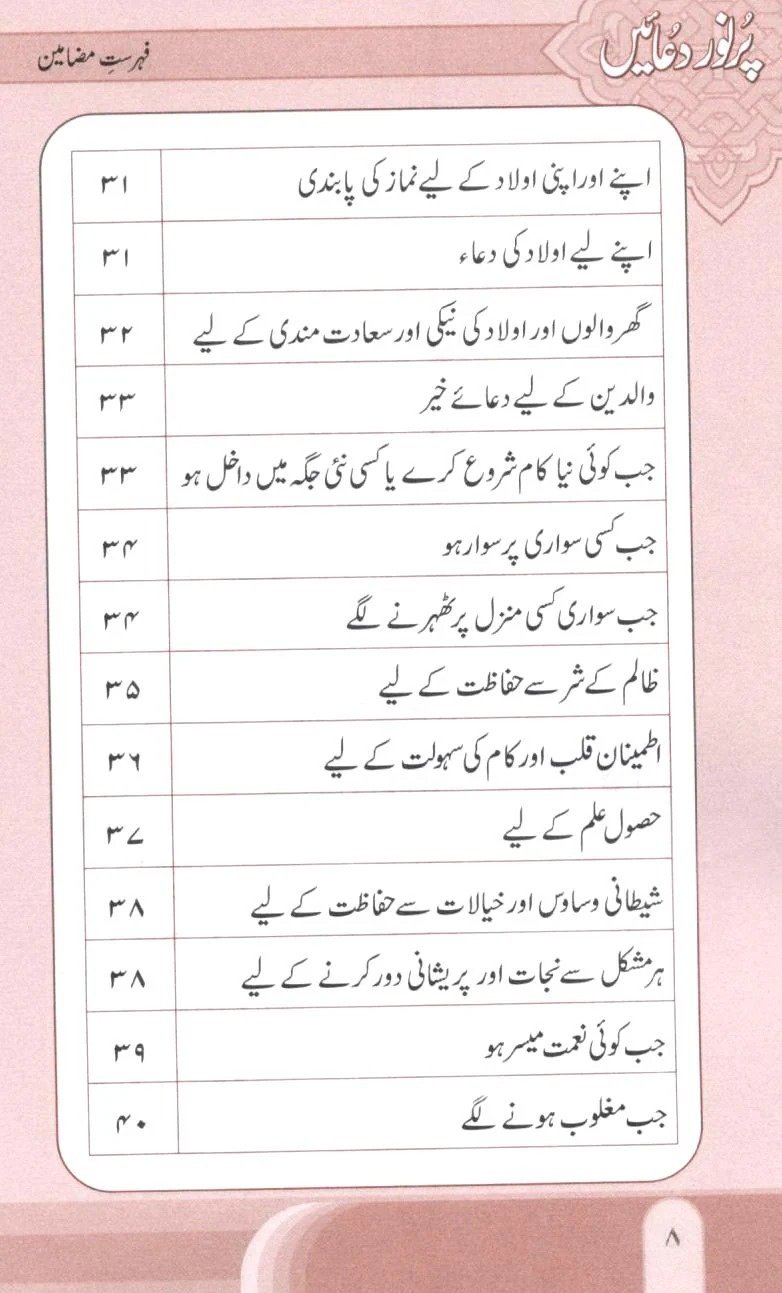 پُرنور دُعائیں
فہرستِ مضامین
اپنے اور اپنی اولاد کے لیے نماز کی پابندی ۳۱
اپنے لیے اولاد کی دعاء ۳۱
گھر والوں اور اولاد کی نیکی اور سعادت مندی کے لیے ۳۲
والدین کے لیے دعائے خیر ۳۳
جب کوئی نیا کام شروع کرے یا کسی نئی جگہ میں داخل ہو ۳۳
جب کسی سواری پر سوار ہو ۳۴
جب سواری کسی منزل پر ٹھہرنے لگے ۳۴
ظالم کے شر سے حفاظت کے لیے ۳۵
اطمینان قلب اور کام کی سہولت کے لیے ۳۶
حصول علم کے لیے ۳۷
شیطانی وساوس اور خیالات سے حفاظت کے لیے ۳۸
ہر مشکل سے نجات اور پریشانی دور کرنے کے لیے ۳۸
جب کوئی نعمت میسر ہو ۳۹
جب مغلوب ہونے لگے ۴۰
۸